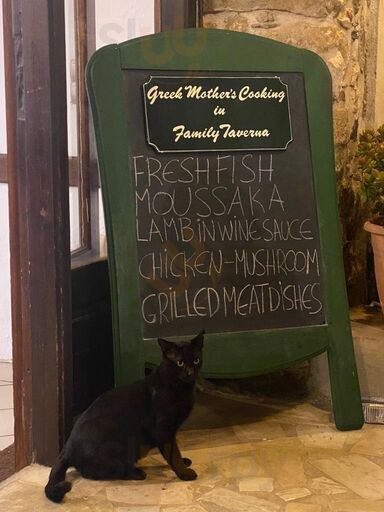 Greek Mother's Cooking
in
Family Taverna
FRESH FISH
MOUSSAKA
LAMB IN WINE SAUCE
CHICKEN-MUSHROOM
GRILLED MEAT DISHES